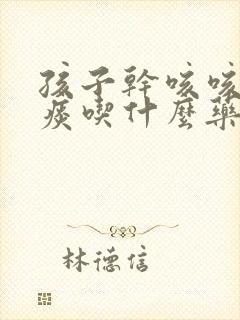 孩子幹咳咳
痰喫什麼藥
林德信